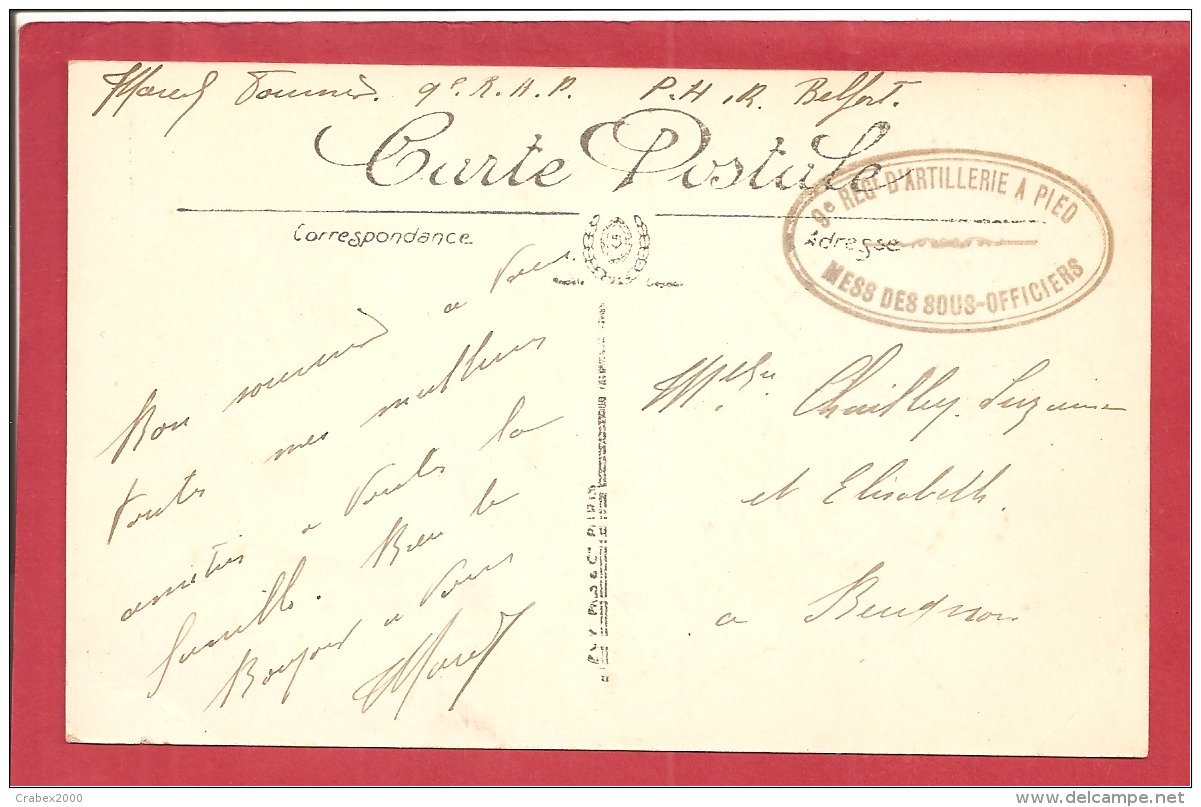 Marcel Fournier. 9e R.A.P. P.H.R. Belfort.
Carte Postale
9e REGt D'ARTILLERIE A PIED
MESS DES SOUS-OFFICIERS
Correspondance
Adresse
Bon souvenir a vous.
toutes mes meilleurs
amitiés a toute la
famille. Bien le
Bonjour a vous
Marcel
Melles Chailley Suzanne
et Elisabeth.
a Beugnon
Crabex2000
www.delcampe.net